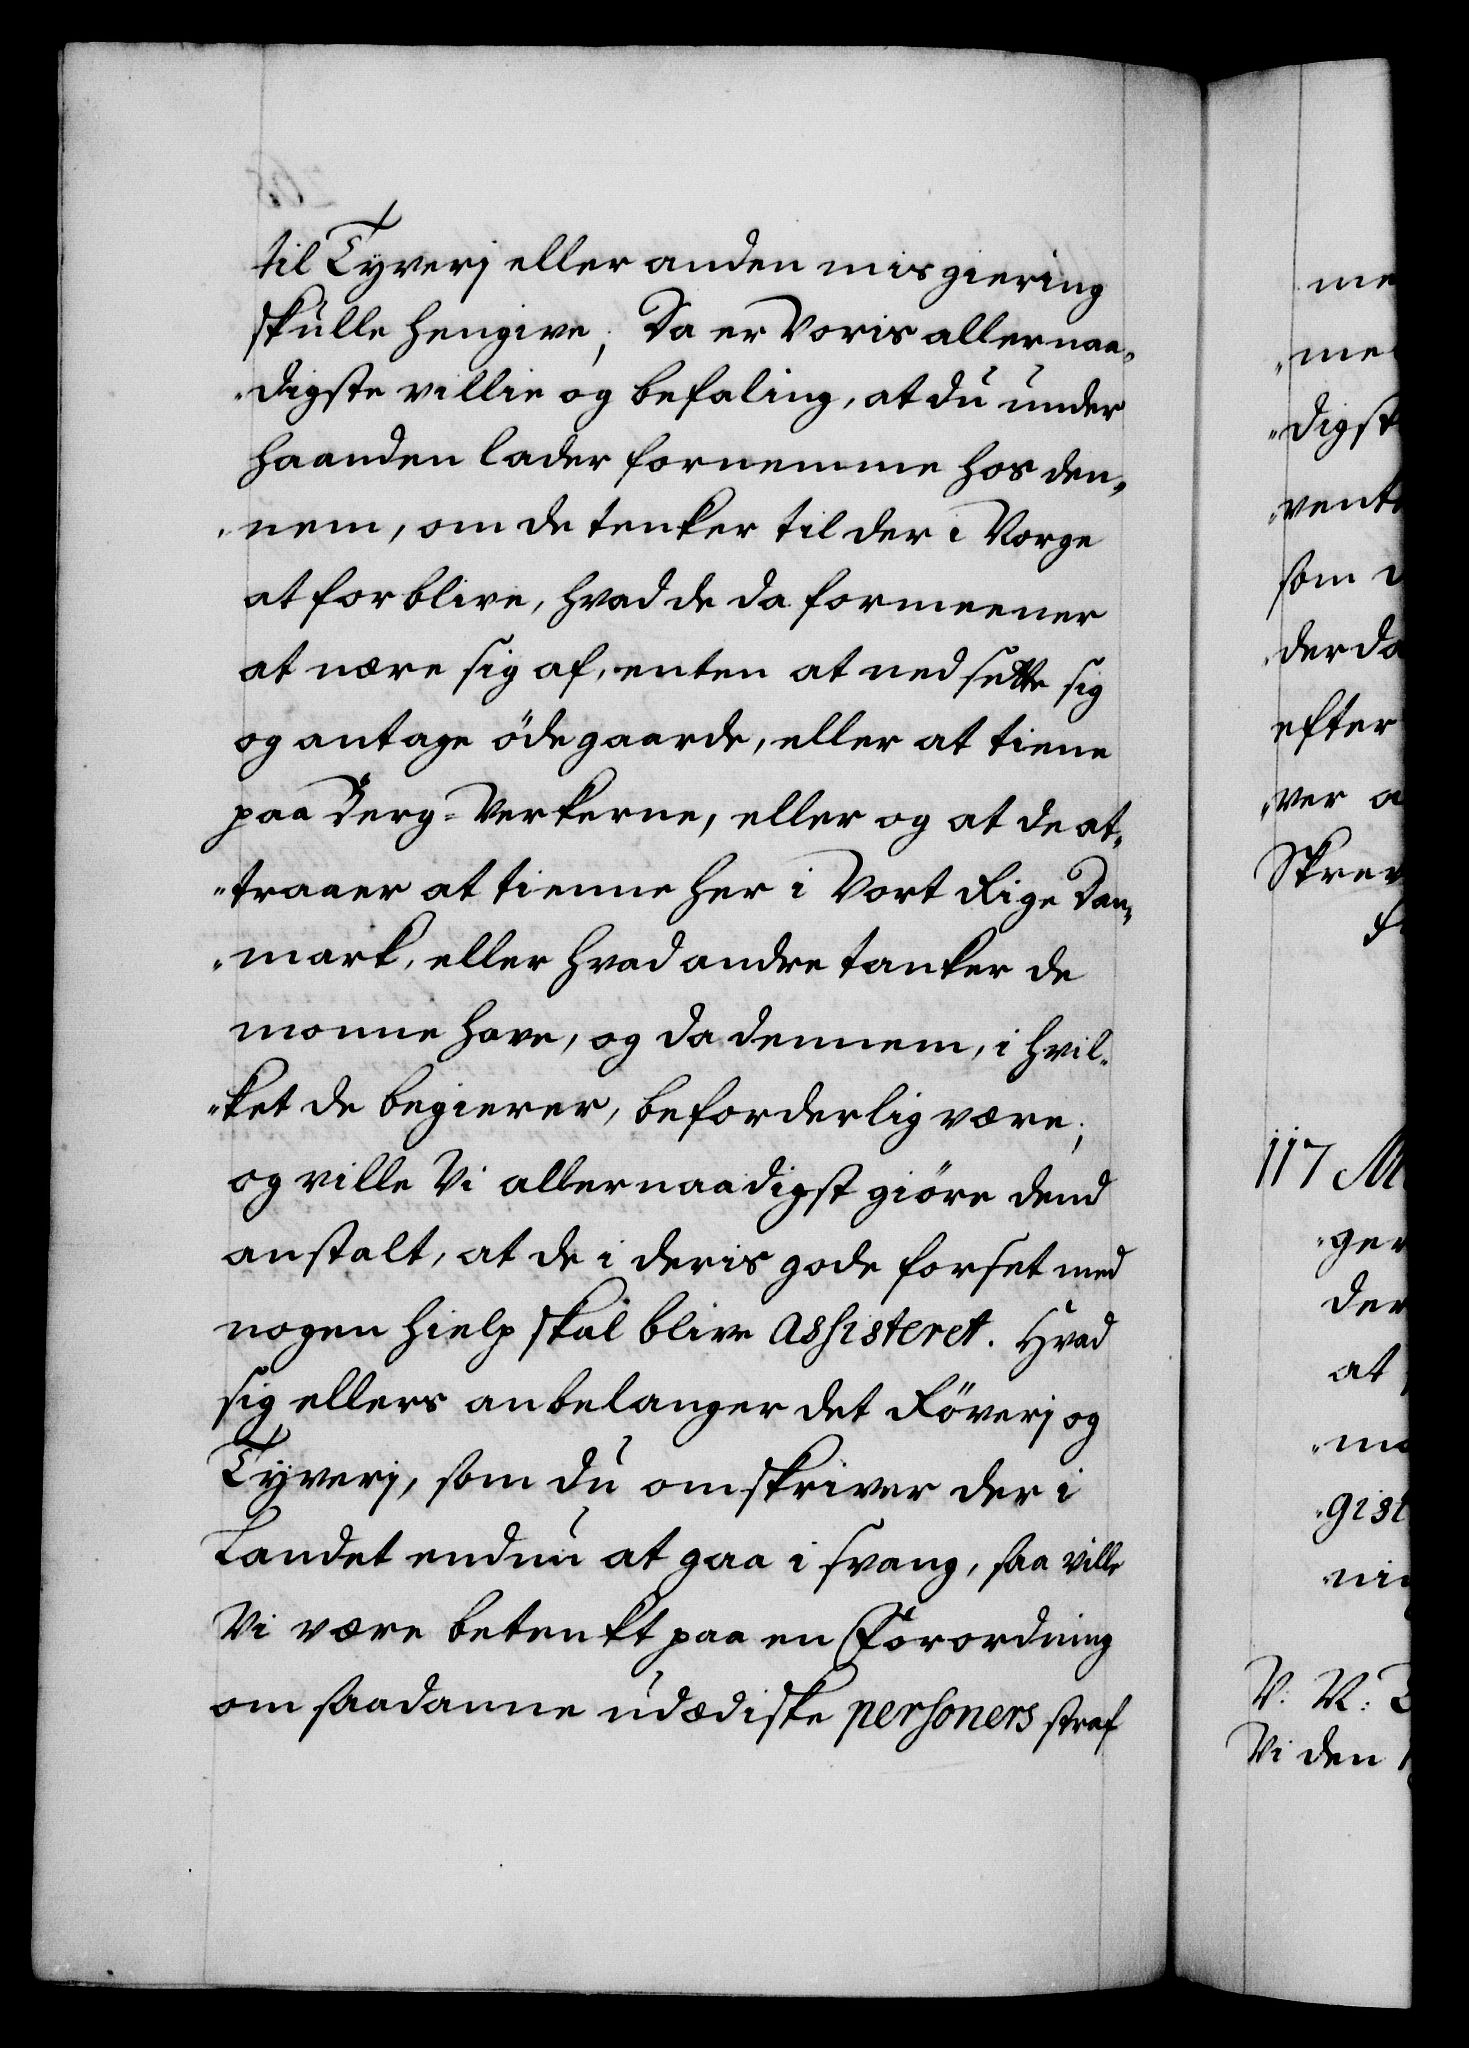 til Tyverj eller anden misgiering
skulle hengive; Da er Voris allernaa„
„digste villie og befaling, at du under
haanden lader fornemme hos den„
„nem, om de tenker til der i Norge
at forblive, hvad de da formeener
at nære sig af, enten at nedsætte sig
og antage ödegaarde, eller at tiene
paa Berg-Verkerne, eller og at de at„
„traaer at tienne her i Vort Rige Dan„
„mark, eller hvad andre tanker de
monne have, og da dennem, i hvil„
„ket de begierer, beforderlig være;
og ville Vi allernaadigst giöre dend
anstalt, at de i deris gode forset med
nogen hielp skal blive assisteret. Hvad
sig ellers anbelanger det Röverj og
Tyverj, som du omskriver der i
Landet endnu at gaa i svang, saa ville
Vi være betenkt paa en Forordning
om saadanne udædiske personers straf
me
„me
„digst
„vent
som
„derda
efter
„ver a
Skrev
117 M
„ger
der
at
„ma
„gist
„nin
V. N:
Vi den